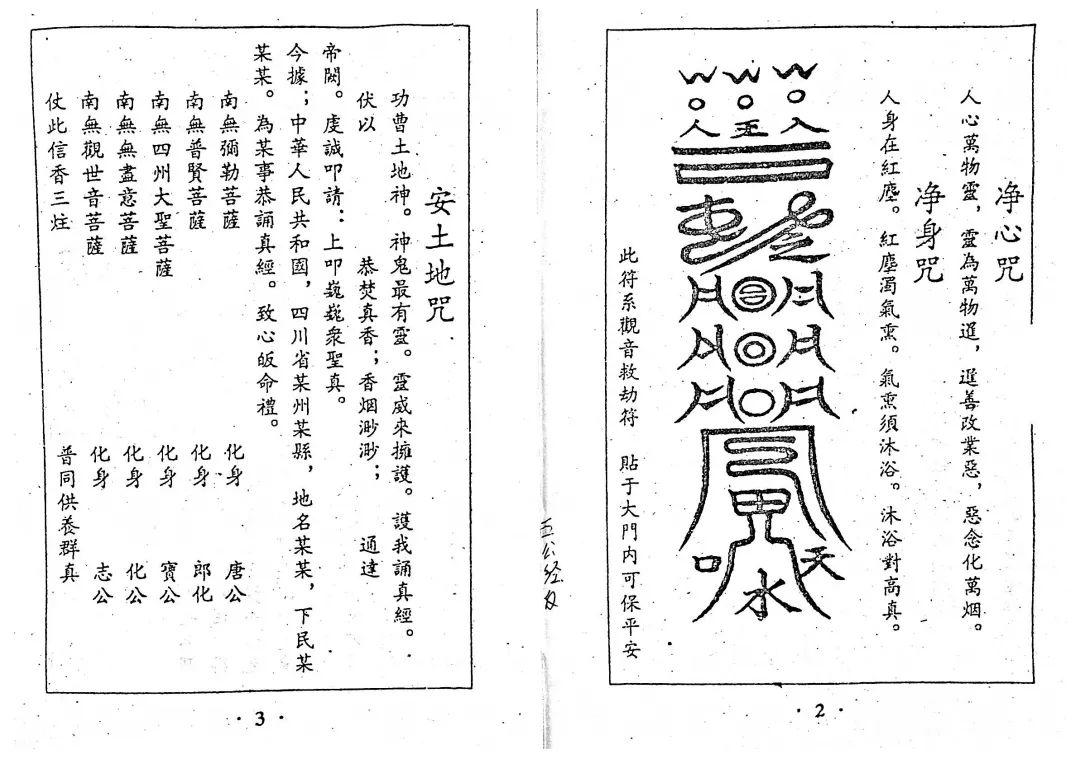 净心咒
人心萬物靈,靈為萬物選,選善改業惡,惡念化萬烟。
净身咒
人身在紅塵。紅塵濁氣熏。氣熏須沐浴。沐浴對高真。
人 玉 入
口 水 天
此符系觀音救劫符 貼于大門内可保平安
·2·
五公经
安土地咒
功曹土地神。神鬼最有靈。靈威來擁護。護我誦真經。
伏以 恭焚真香;香烟渺渺; 通達
帝闕。虔誠叩請:上叩巍巍衆聖真。
今據;中華人民共和國,四川省某州某縣,地名某某,下民某
某某。為某事恭誦真經。致心皈命禮。
南無彌勒菩薩 化身 唐公
南無普賢菩薩 化身 郎化
南無四州大聖菩薩 化身 寶公
南無無盡意菩薩 化身 化公
南無觀世音菩薩 化身 志公
仗此信香三炷 普同供養群真
·3·